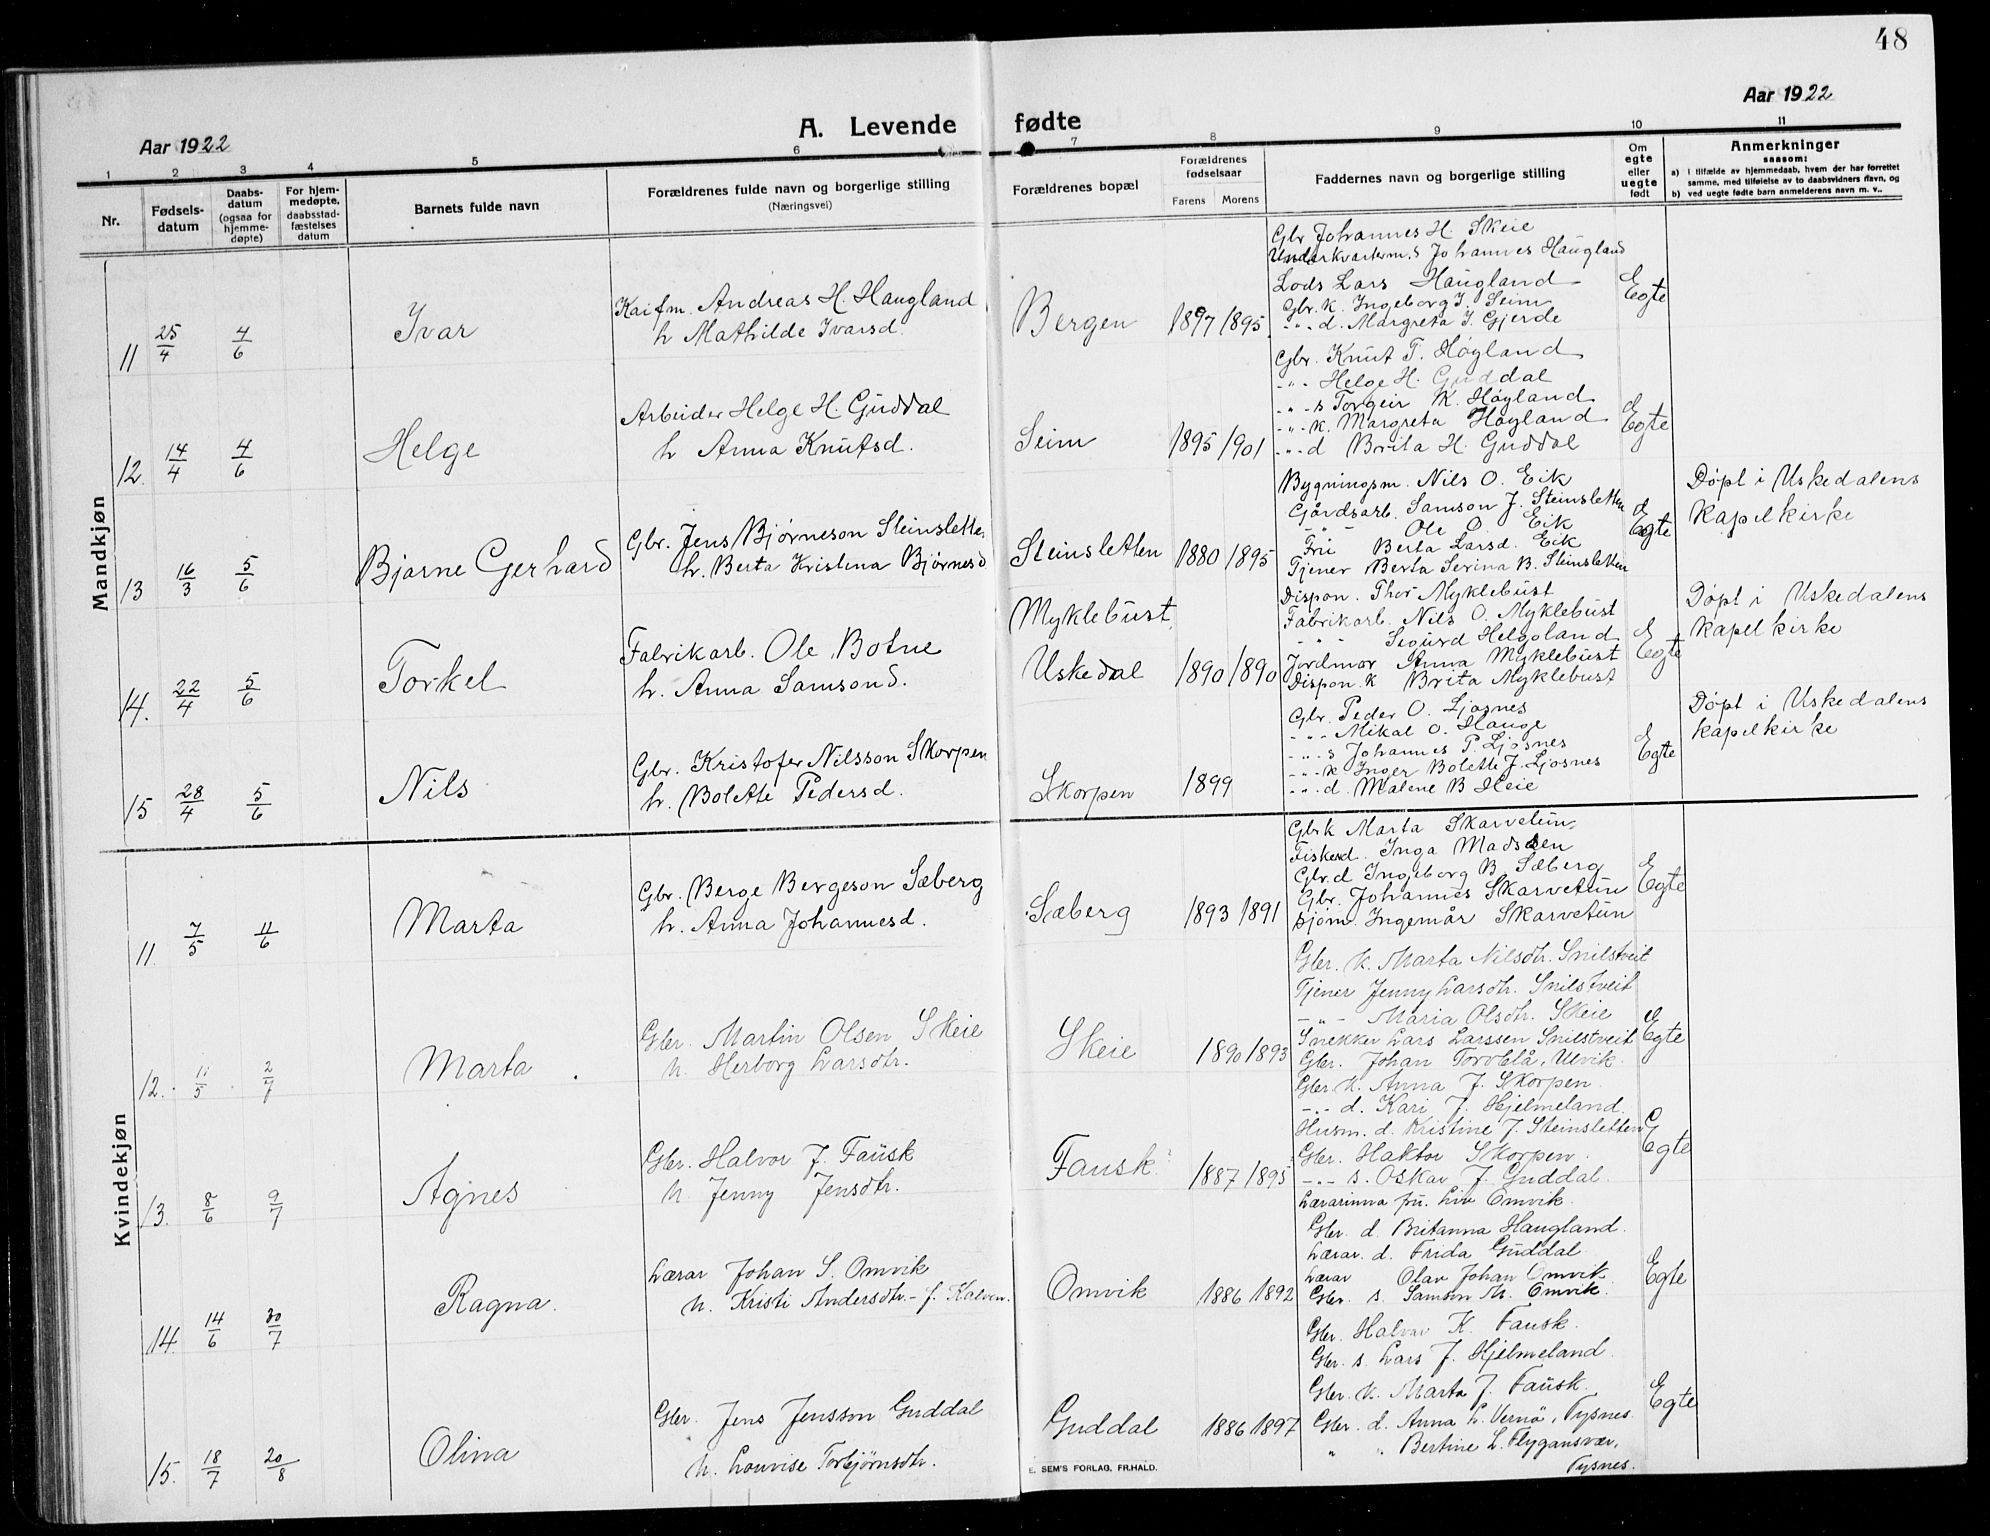 48
Aar 1922
A. Levende fødte
Aar 1922
1 2 3 4 5 6 7 8 9 10 11
Nr.
Fødsels-
datum
Daabs-
datum
(ogsaa for
hjemme-
døpte)
For hjem-
medøpte,
daabsstad-
fæstelses
datum
Barnets fulde navn
Forældrenes fulde navn og borgerlige stilling
(Næringsvei)
Forældrenes bopæl
Forældrenes
fødselsaar
Farens Morens
Faddernes navn og borgerlige stilling
Om
egte
eller
uegte
født
Anmerkninger
saasom:
a) i tilfælde av hjemmedaab, hvem der har forrettet
samme, med tilføielse av to daabsvidners navn, og
b) ved uegte fødte barn anmelderens navn m. v..
Mandkjøn
11 25/4 4/6 Ivar
Kaifm. Andreas H. Haugland
h Mathilde Ivarsd.
Bergen 1897 1895
Gbr Johannes H. Skeie
Underkvarterm.s Johannes Haugland
Lods Lars Haugland
Gbr. k. Ingeborg J. Seim
-"- d. Margreta J. Gjerde
Egte
12. 14/4 4/6 Helge
Arbeider Helge H. Guddal
h Anna Knutsd.
Seim 1895 1901
Gbr. Knut T. Høyland
-"- Helge H. Guddal
-"- s Torgeir K. Høyland
-"- k. Margreta Høgland
-"- d Brita H. Guddal
Egte
13 16/3 5/6 Bjarne Gerhard
Gbr. Jens Bjørneson Steinsletten
h. Berta Kristena Bjørnesd
Steinsletten 1880 1895
Bygningsm. Nils O. Eik
Gårdsarb. Samson J. Steinsletten
-"- Ole O. Eik
Fru Berta Larsd. Eik
Tjener Berta Serina B. Steinsletten
Egte
Døpt i Uskedalens
kapelkirke
14. 22/4 5/6 Torkel
Fabrikarb. Ole Botne
h. Anna Samsond.
Myklebust,
Uskedal 1890 1890
Dispon. Thor Myklebust
Fabrikarb. Nils O. Myklebust
-"- Sigurd Helgoland
Jordmor Anna Myklebust
Dispon. k Brita Myklebust
Egte
Døpt i Uskedalens
kapelkirke
15 28/4 5/6 Nils
Gbr. Kristofer Nilsson Skorpen
h. Bolette Pedersd.
Skorpen 1899
Gbr. Peder O. Ljosnes
-"- Mikal O. Hauge
-"- s Johannes P. Ljosnes
-"- k Inger Bolette J. Ljosnes
-"- d. Malene B Heie
Egte
Døpt i Uskedalens
kapelkirke
Kvindekjøn
11. 7/5 11/6 Marta
Gbr. Berge Bergeson Sæberg
h. Anna Johannesd.
Sæberg 1893 1891
Gbr k Marta Skarvetun,
Fisker d. Inga Madsen
Gbr. d Ingeborg B Sæberg
Gbr. Johannes Skarvetun
Sjøm. Ingemår Skarvetun
Egte
12. 11/5 2/7 Marta
Gbr. Martin Olsen Skeie
h. Herborg Larsdtr.
Skeie 1890 1893
Gbr. k. Marta Nilsdtr. Snilstveit
Tjener Jenny Larsdtr. Snilstveit
-"- Maria Olsdtr. Skeie
Snekker Lars Larssen Snilstveit
Gbr. Johan Torblå, Ulvik.
Egte
13. 8/6 9/7 Agnes
Gbr. Halvor J. Fausk
h. Jenny Jensdtr.
Fausk 1887 1895
Gbr. k. Anna J. Skorpen.
-"- d. Kari J. Hjelmeland.
Husm. d. Kristine J. Steinsletten
Gbr. Haktor Skorpen.
-"- s. Oskar J. Guddal.
Egte
14. 14/6 30/7 Ragna.
Lærar Johan S. Omvik
h. Kristi Andersdtr. f. Kalven.
Omvik 1886 1892
Lærarinna frk. Liv Omvik.
Gbr. d. Britanna Haugland.
Lærar. d. Frida Guddal
Lærar Olav Johan Omvik
Gbr. s. Samson M. Omvik.
Egte
15. 18/7 20/8 Olina
Gbr. Jens Jensson Guddal
h. Lovise Torbjørnsdtr.
Guddal 1886 1897
Gbr. Halvar K. Fausk.
Gbr. s. Lars J. Hjelmeland.
Gbr. k. Marta J. Fausk.
Gbr. d. Anna L. Vernø, Tysnes.
" " Bertine L. Flygansvær,
Tysnes.
Egte
E. SEM'S FORLAG, FR.HALD.